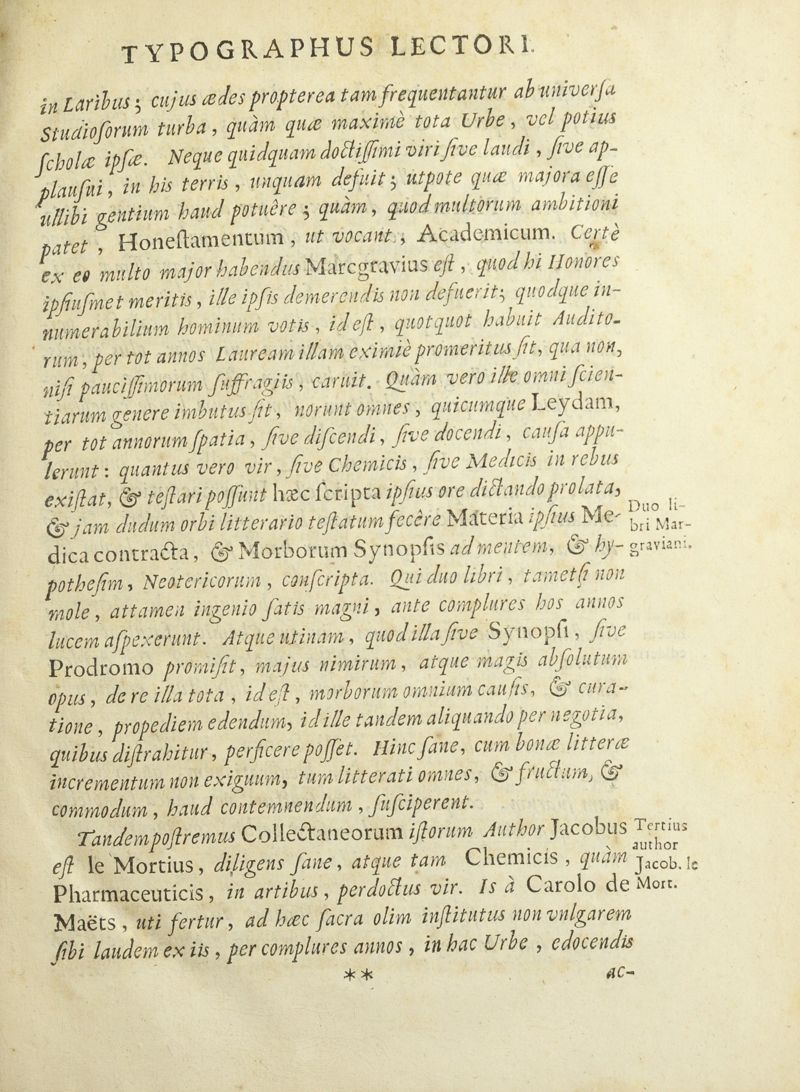 TYPOGRAPHUS LECTORI.
in Laribus; cujus ædes propterea tam frequentantur ab universa
Studiosorum turba, quàm quæ maximè tota Urbe, vel potius
schola ipsæ. Neque quidquam doctissimi viri sive laudi, sive ap-
plausui, in his terris, unquam defuit; utpote quæ majora esse
ullibi gentium haud potuêre; quàm, quod multorum ambitioni
patet, Honestamentum, ut vocant, Academicum. Certè
ex eo multo major habendus Marcgravius est, quod hi Honores
ipsiusmet meritis, ille ipsis demerendis non defuerit; quodque in-
numerabilium hominum votis, id est, quotquot habuit Audito-
rum, per tot annos Lauream illam eximiè promeritus sit, qua non,
nisi paucissimorum suffragiis, caruit. Quàm vero ille omni scien-
tiarum genere imbutus sit, norunt omnes, quicumque Leydam,
per tot annorum spatia, sive discendi, sive docendi, causa appu-
lerunt: quantus vero vir, sive Chemicis, sive Medicis in rebus
existat, & testari possunt hæc scripta ipsius ore dictando prolata,
& jam dudum orbi litterario testatum fecêre Materia ipsius Me-
Duo li-
bri Mar-
graviani.
dica contracta, & Morborum Synopsis ad mentem, & hy-
pothesim, Neotericorum, conscripta. Qui duo libri, tametsi non
mole, attamen ingenio satis magni, ante complures hos annos
lucem aspexerunt. Atque utinam, quod illa sive Synopsi, sive
Prodromo promisit, majus nimirum, atque magis absolutum
opus, de re illa tota, id est, morborum omnium causis, & cura-
tione, propediem edendum, id ille tandem aliquando per negotia,
quibus distrahitur, perficere posset. Hinc sane, cum bonæ litteræ
incrementum non exiguum, tum litterati omnes, & fructum, &
commodum, haud contemnendum, susciperent.
Tandem postremus Collectaneorum istorum Author Jacobus
Tertius
author
Jacob. le
Mort.
est le Mortius, diligens sane, atque tam Chemicis, quàm
Pharmaceuticis, in artibus, perdoctus vir. Is à Carolo de
Maëts, uti fertur, ad hæc sacra olim institutus non vulgarem
sibi laudem ex iis, per complures annos, in hac Urbe, edocendis
** ac-